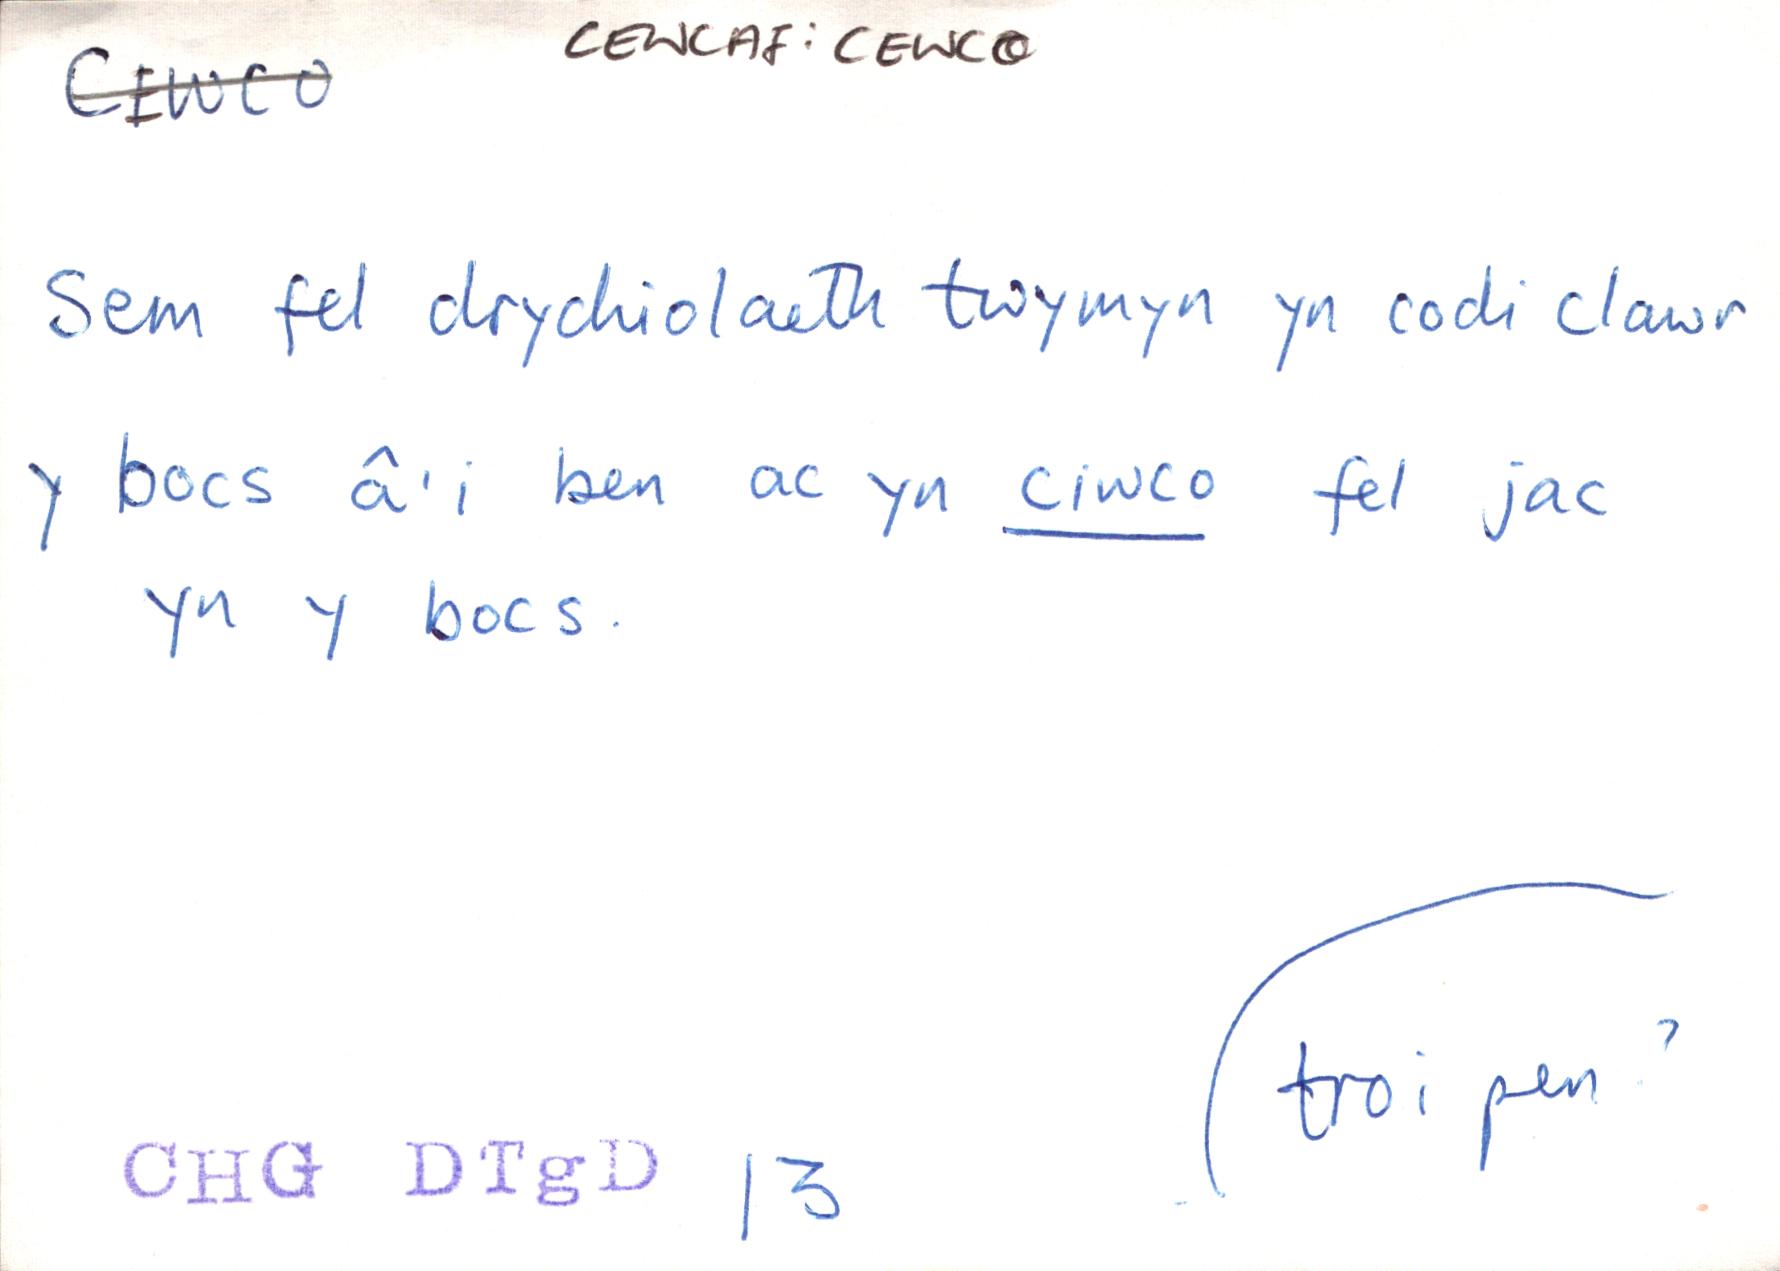 CEWCAF: CEWCO
CEWCO
Sem fel drychiolaeth twymyn yn codi clawr
y bocs â'i ben ac yn ciwco fel jac
yn y bocs.
troi pen?
CHG DTgD 13